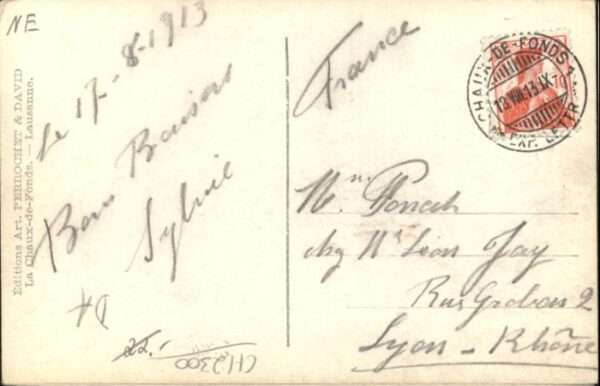 NE
Editions Art. PERROCHET & DAVID
La Chaux-de-Fonds. — Lausanne.
le 17-8-1913
Bons Baisers
Sylvie
22.-
CH.2300
France
CHAUX-DE-FONDS
18.VIII.13.IX
EXP. LETTR.
chez Mr Léon Jay
Rue 2
Lyon - Rhône